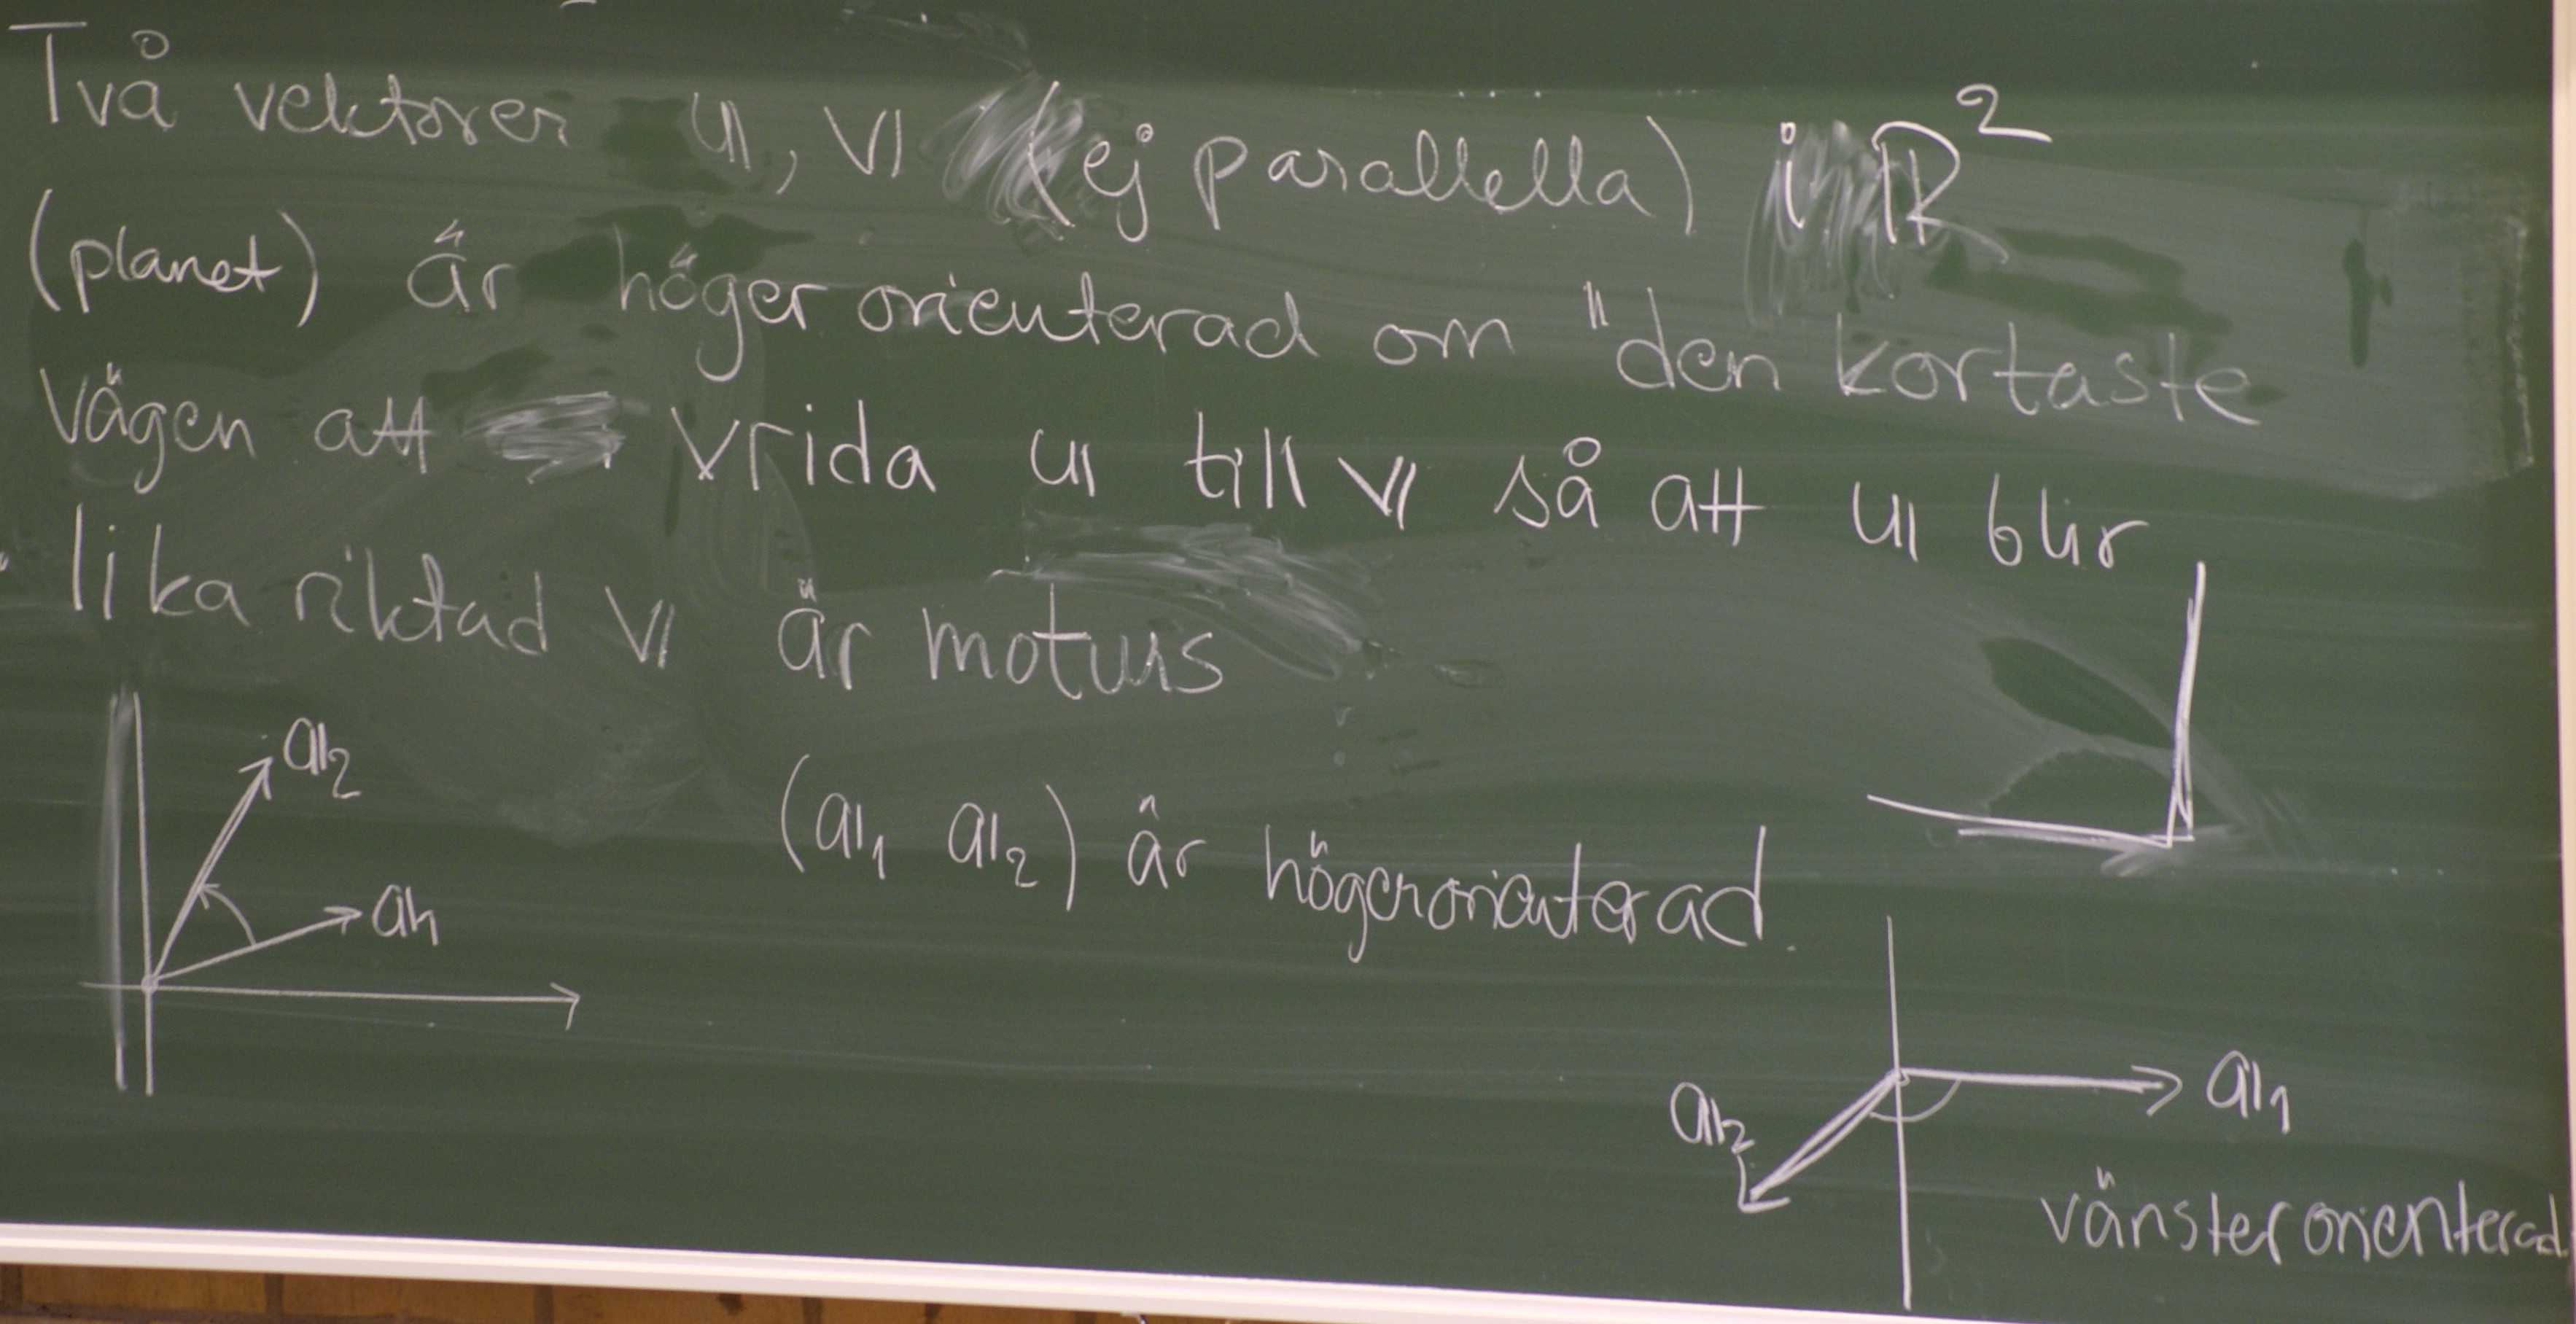 Två vektorer u, v (ej parallella) i R²
(planet) är höger orienterad om "den kortaste
vägen att vrida u till v så att u blir
lika riktad v är moturs
a₂
(a₁ a₂) är högerorienterad.
a₁
a₁
a₂
vänsterorienterad